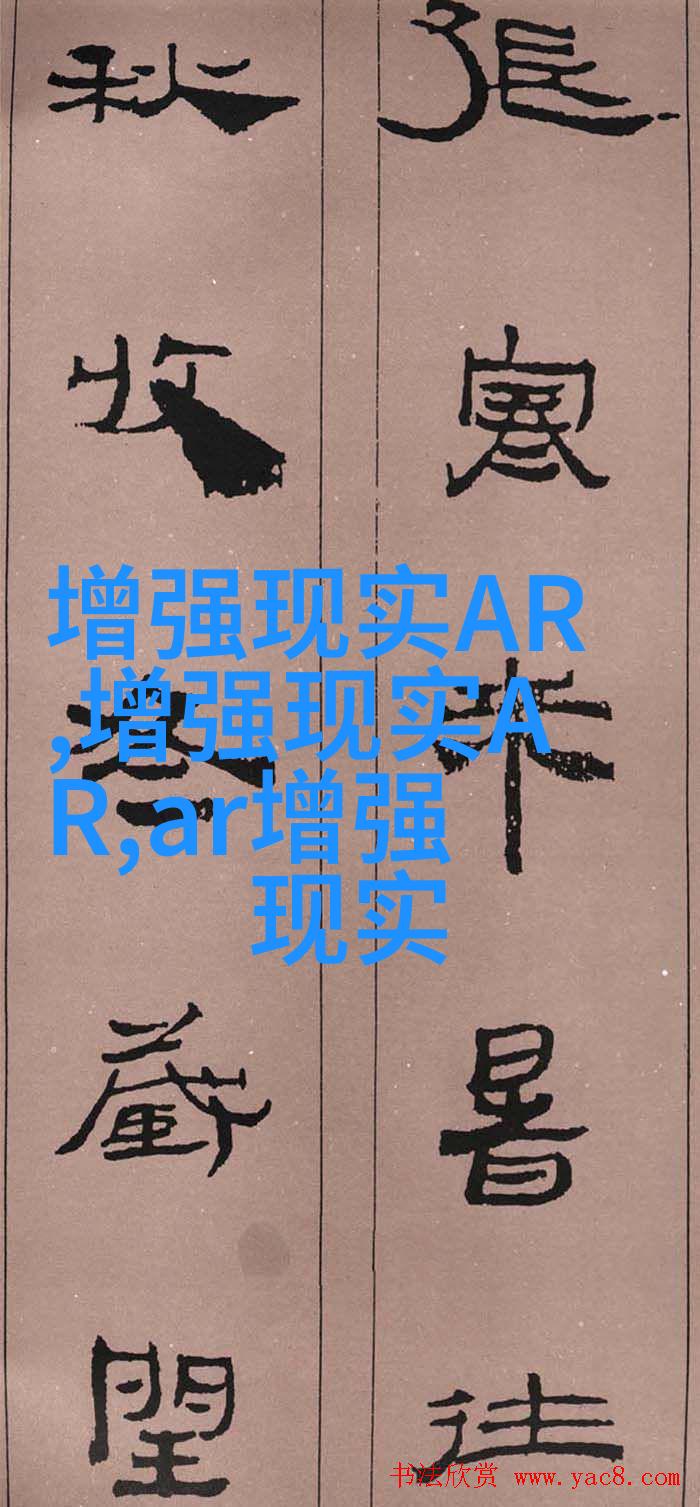 張寒来暑往
秋收冬藏閏
增强现实AR
,增强现实A
R,ar增强
现实
书法欣赏 www.yac8.com